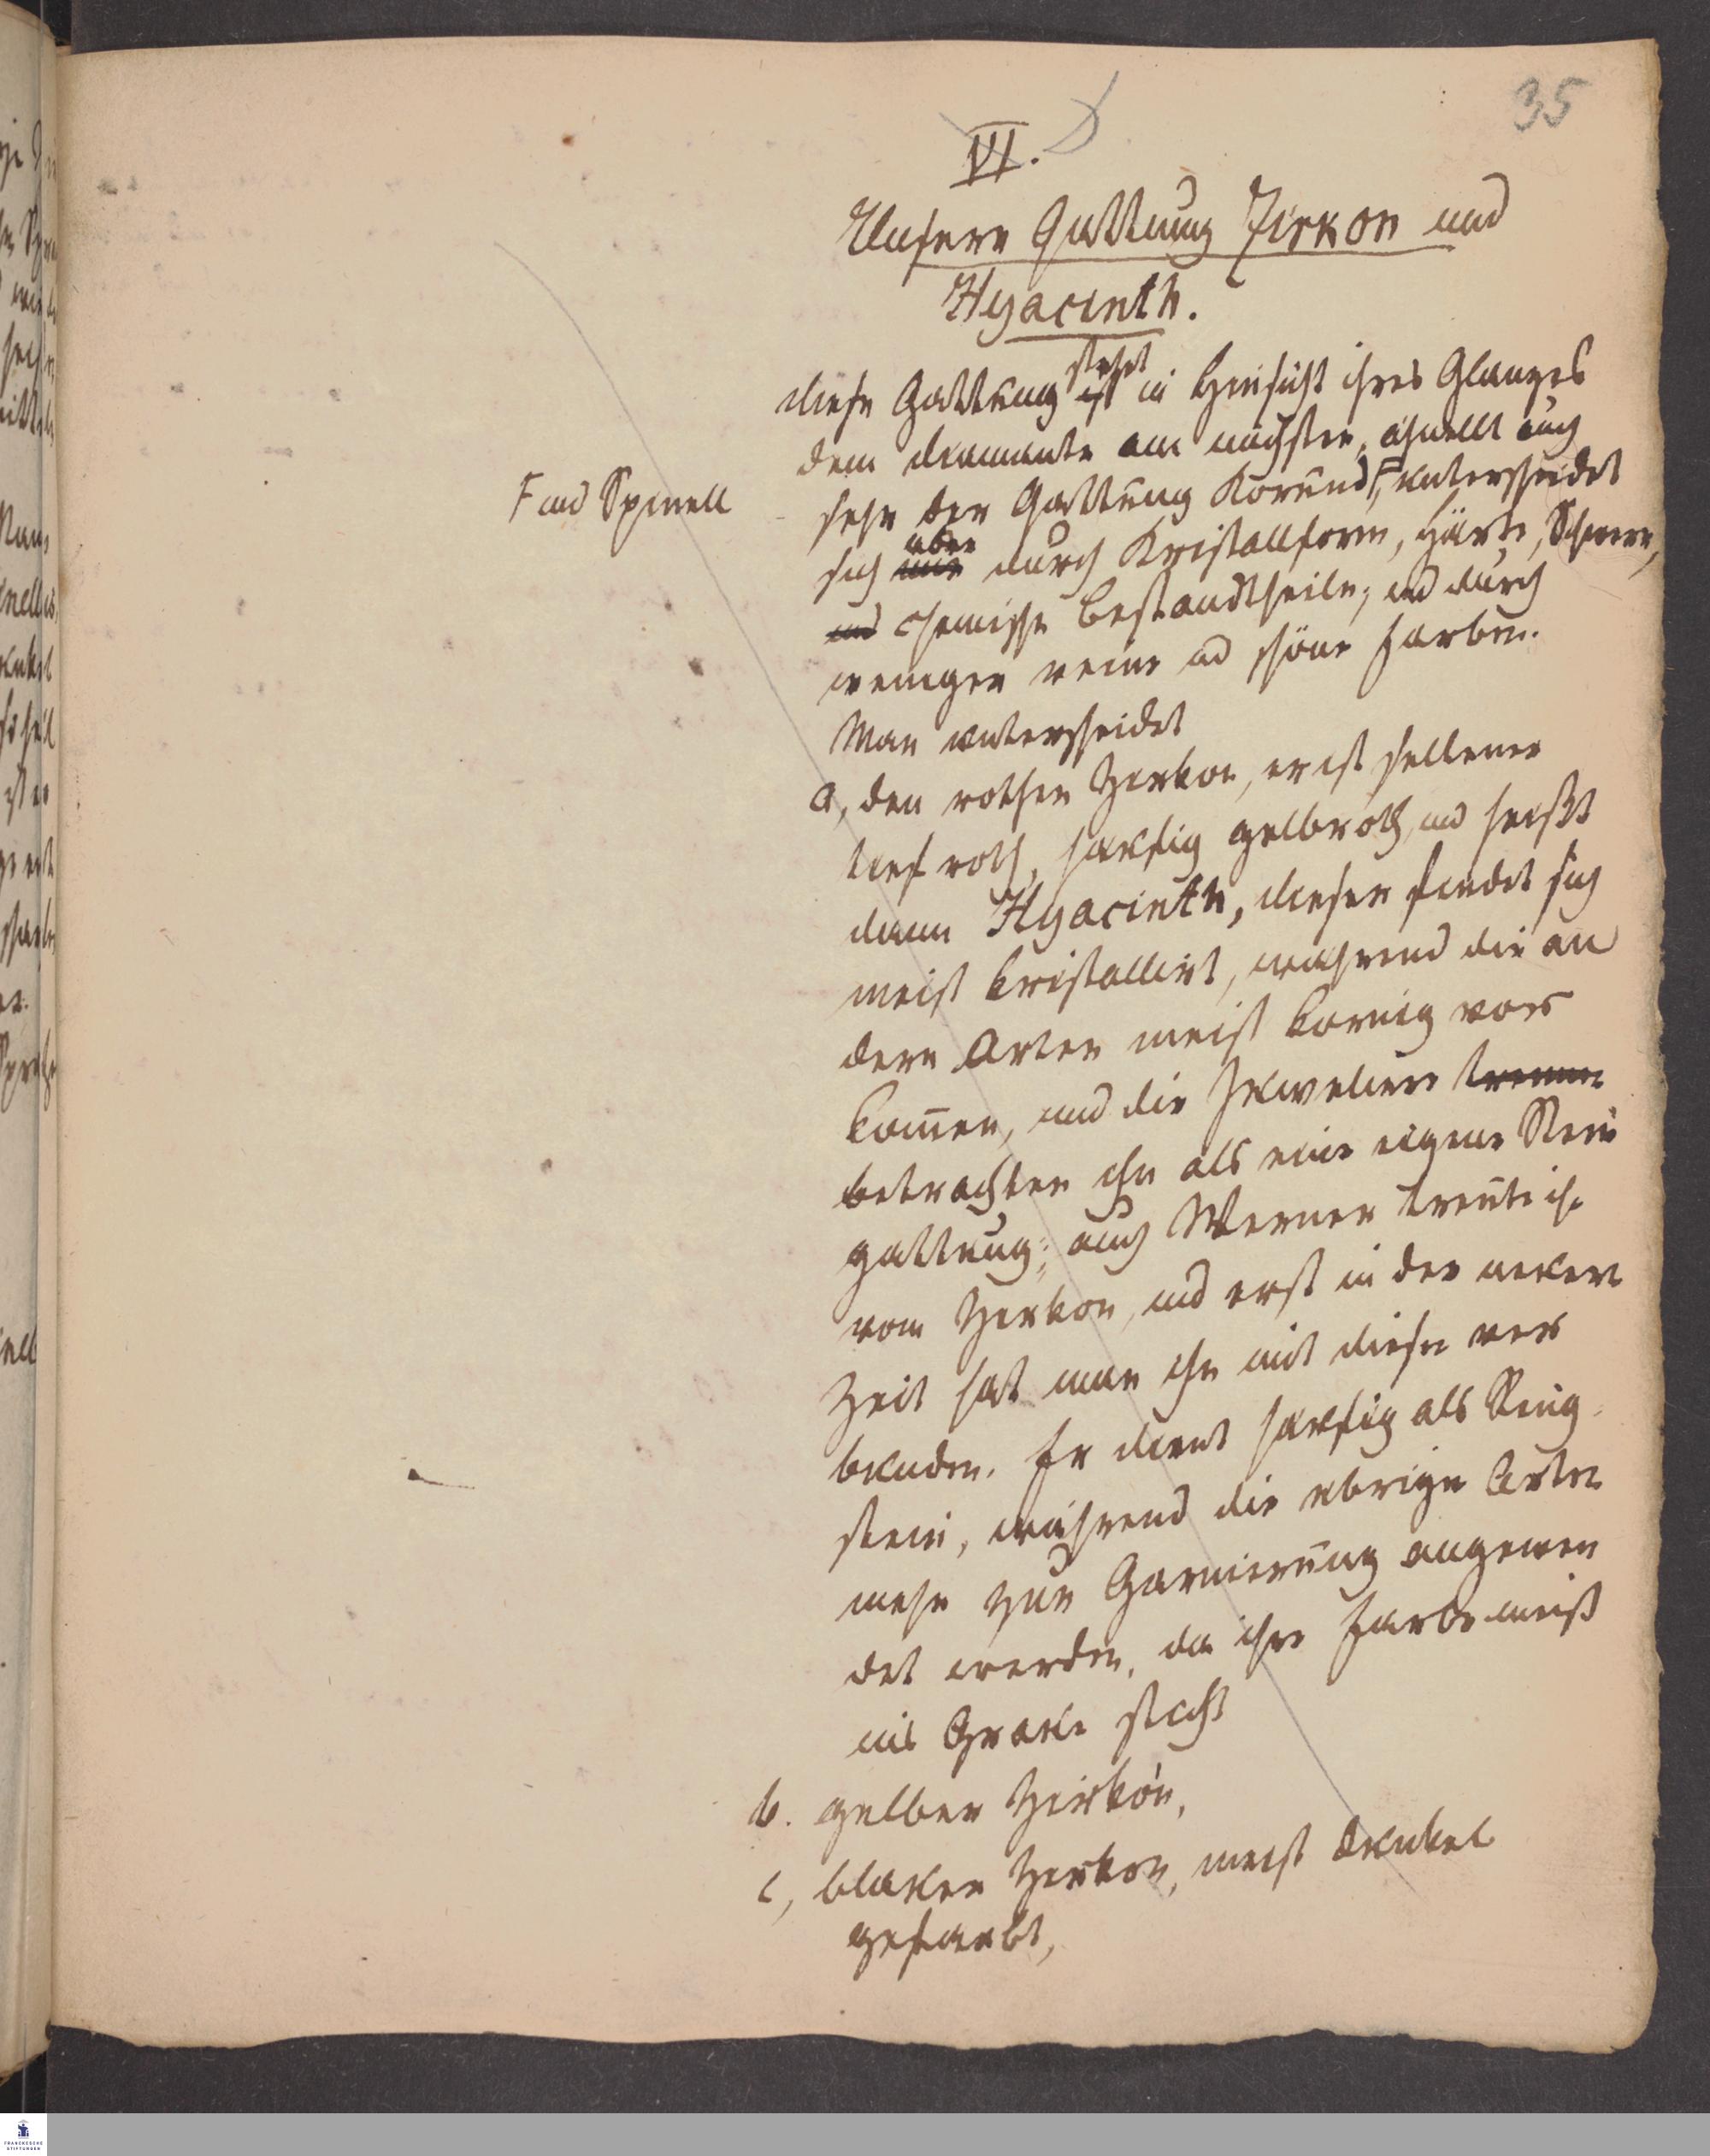 35
VI.
Unsere Gattung Zirkon und
Hyacinth.
diese Gattung ist steht in Hinsicht ihres Glanzes
dem diamante am nächsten, ähnelt auch
F und Spinell
sehr der Gattung Korund F, unterscheidet
sich nur aber durch Kristallform, Härte, Schwere,
und chemische Bestandtheile, und durch
weniger reine und schöne Farben.
Man unterscheidet
a, den rothen Zirkon, er ist seltener
tief roth, häufig gelbroth, und heißt
dann Hyacinth, dieser findet sich
meist kristallirt, während die an
dern Arten meist körnig vor
kom̅en, und die Juweliere trennen
betrachten ihn als eine eigene Stein
gattung; auch Werner tren̅te ihn
vom Zirkon, und erst in der neuern
Zeit hat man ihn mit diesen ver
bunden. Er dient häufig als Ring
stein, während die übrigen Arten
mehr zur Garnierung angewen
det werden, da ihre Farbe meist
ins Graue sticht
b. gelber Zirkon,
c, blauer Zirkon, meist dunkel
gefärbt,
FRANCKESCHE
STIFTUNGEN